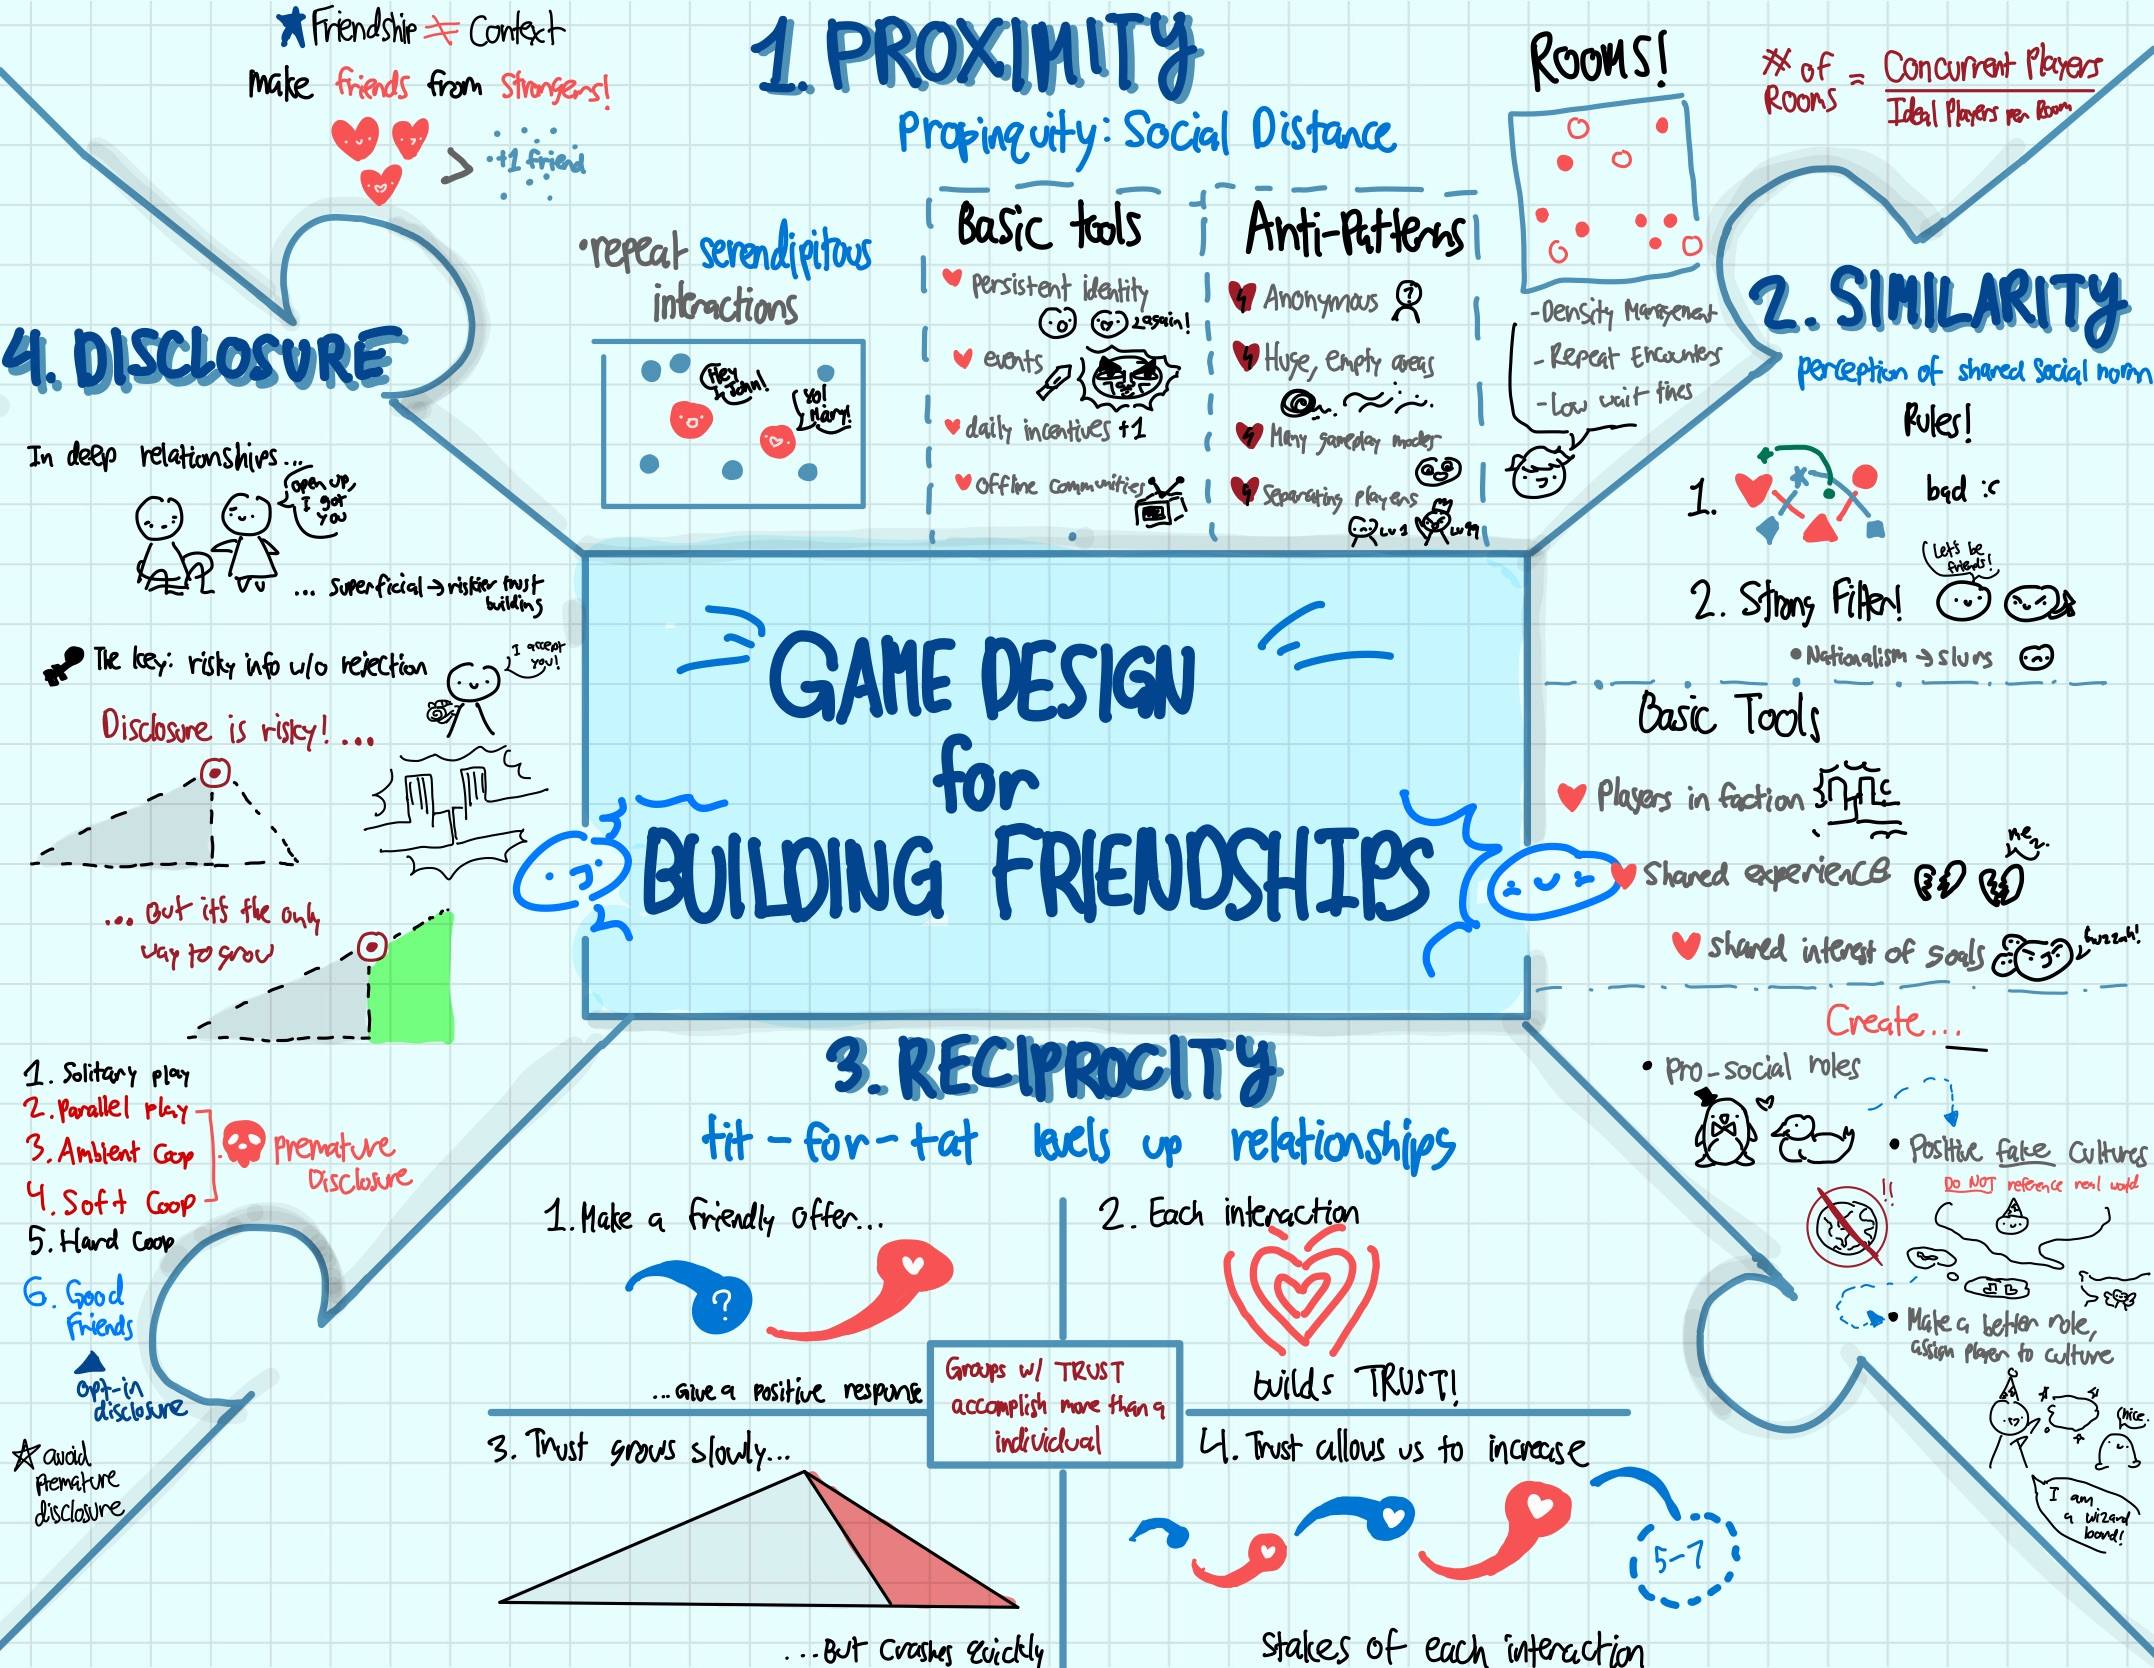 Friendship ≠ Context
make friends from strangers!
> +1 friend
1. PROXIMITY
Propinquity: Social Distance
• repeat serendipitous
interactions
Hey
John!
Yo!
Mary!
Basic tools
persistent identity
again!
events
daily incentives +1
Offline communities
Anti-Patterns
Anonymous
?
Huge, empty areas
Many gameplay modes
Separating players
Lv 1
Lv 99
ROOMS!
# of Rooms = Concurrent Players / Ideal Players per Room
- Density Management
- Repeat Encounters
- Low wait times
2. SIMILARITY
perception of shared social norm
Rules!
1.
bad :c
2. Strong Filter!
Let's be
friends!
• Nationalism → slurs
Basic Tools
Players in faction
Shared experience
me
2.
Shared interest of goals
huzzah!
Create...
• pro-social roles
• Positive fake cultures
DO NOT reference real world
!!
• Make a better role,
assign player to culture
nice.
I am
a wizard
bond!
GAME DESIGN
for
BUILDING FRIENDSHIPS
3. RECIPROCITY
tit-for-tat levels up relationships
1. Make a friendly offer...
?
...Give a positive response
2. Each interaction
builds TRUST!
Groups w/ TRUST
accomplish more than a
individual
3. Trust grows slowly...
...But crashes quickly
4. Trust allows us to increase
5-7
Stakes of each interaction
4. DISCLOSURE
In deep relationships...
open up,
I got
you
... superficial → riskier trust
building
The key: risky info w/o rejection
I accept
you!
Disclosure is risky!...
... But it's the only
way to grow
1. Solitary play
2. Parallel play
3. Ambient Coop
4. Soft Coop
Premature
Disclosure
5. Hard Coop
6. Good
Friends
opt-in
disclosure
☆ avoid
premature
disclosure